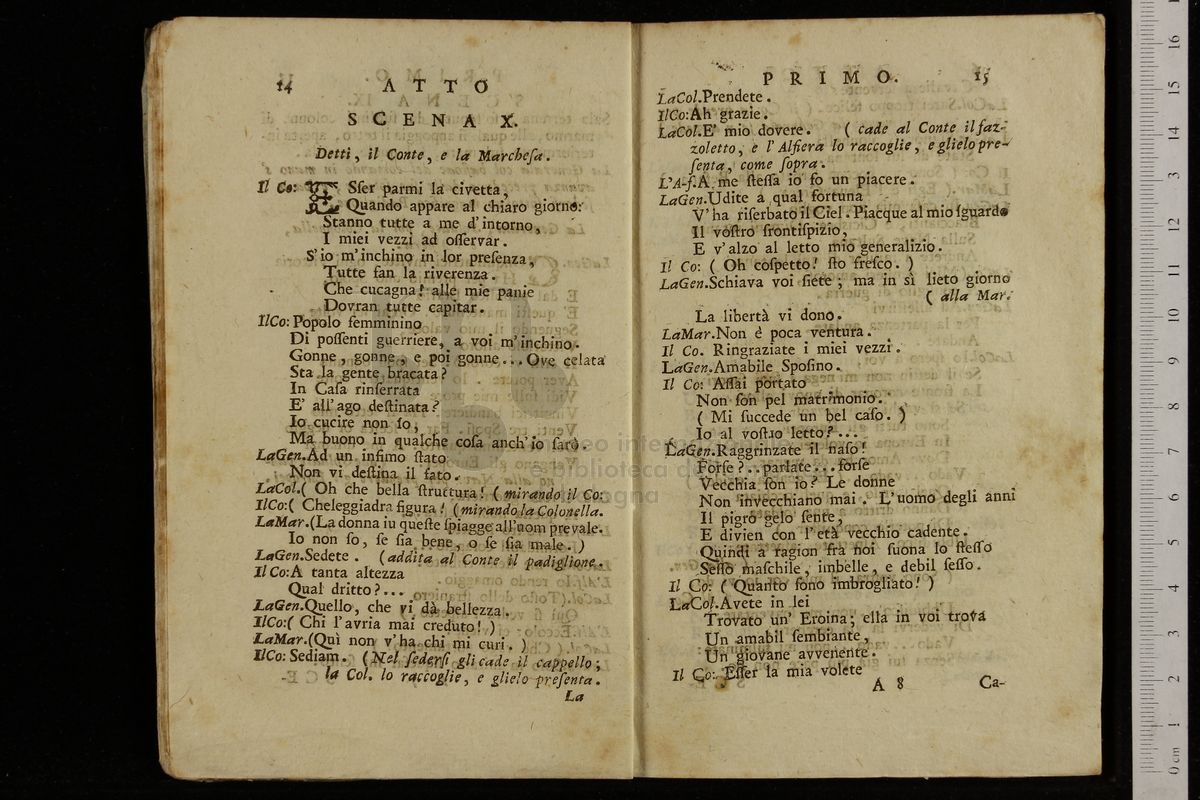 14 ATTO
SCENA X.
Detti, il Conte, e la Marcheſa.
Il Co: ESſer parmi la civetta,
Quando appare al chiaro giorno:
Stanno tutte a me d'intorno,
I miei vezzi ad oſſervar.
S'io m'inchino in lor preſenza,
Tutte fan la riverenza.
Che cucagna! alle mie panie
Dovran tutte capitar.
IlCo: Popolo femminino
Di poſſenti guerriere, a voi m'inchino.
Gonne, gonne, e poi gonne... Ove celata
Sta la gente bracata?
In Caſa rinſerrata
E' all'ago deſtinata?
Io cucire non ſo,
Ma buono in qualche coſa anch'io ſarò.
LaGen. Ad un infimo ſtato
Non vi deſtina il fato.
LaCol. ( Oh che bella ſtruttura! ( mirando il Co:
IlCo: ( Cheleggiadra figura! ( mirando la Colonella.
LaMar. (La donna iu queſte ſpiagge all'uom prevale.
Io non ſo, ſe ſia bene, o ſe ſia male. )
LaGen. Sedete. ( addita al Conte il padiglione.
Il Co: A tanta altezza
Qual dritto?...
LaGen. Quello, che vi dà bellezza.
IlCo: ( Chi l'avria mai creduto! )
LaMar. (Quì non v'ha chi mi curi. )
IlCo: Sediam. ( Nel ſederſi gli cade il cappello;
la Col. lo raccoglie, e glielo preſenta.
La
PRIMO. 15
LaCol. Prendete.
IlCo: Ah grazie.
LaCol. E' mio dovere. ( cade al Conte il faz-
zoletto, e l'Alfiera lo raccoglie, e glielo pre-
ſenta, come ſopra.
L'A-f. A me ſteſſa io fo un piacere.
LaGen. Udite a qual fortuna
V'ha riſerbato il Ciel. Piacque al mio ſguardo
Il voſtro frontiſpizio,
E v'alzo al letto mio generalizio.
Il Co: ( Oh coſpetto! ſto freſco. )
LaGen. Schiava voi ſiete; ma in sì lieto giorno
( alla Mar.
La libertà vi dono.
LaMar. Non è poca ventura.
Il Co. Ringraziate i miei vezzi.
LaGen. Amabile Spoſino.
Il Co: Aſſai portato
Non ſon pel matrimonio.
( Mi ſuccede un bel caſo. )
Io al voſtro letto?...
LaGen. Raggrinzate il naſo!
Forſe?.. parlate... forſe
Vecchia ſon io? Le donne
Non invecchiano mai. L'uomo degli anni
Il pigro gelo ſente,
E divien con l'età vecchio cadente.
Quindi a ragion fra noi ſuona lo ſteſſo
Seſſo maſchile, imbelle, e debil ſeſſo.
Il Co: ( Quanto ſono imbrogliato! )
LaCol. Avete in lei
Trovato un' Eroina; ella in voi trova
Un amabil ſembiante,
Un giovane avvenente.
Il Co: Eſſer la mia volete
A 8 Ca-